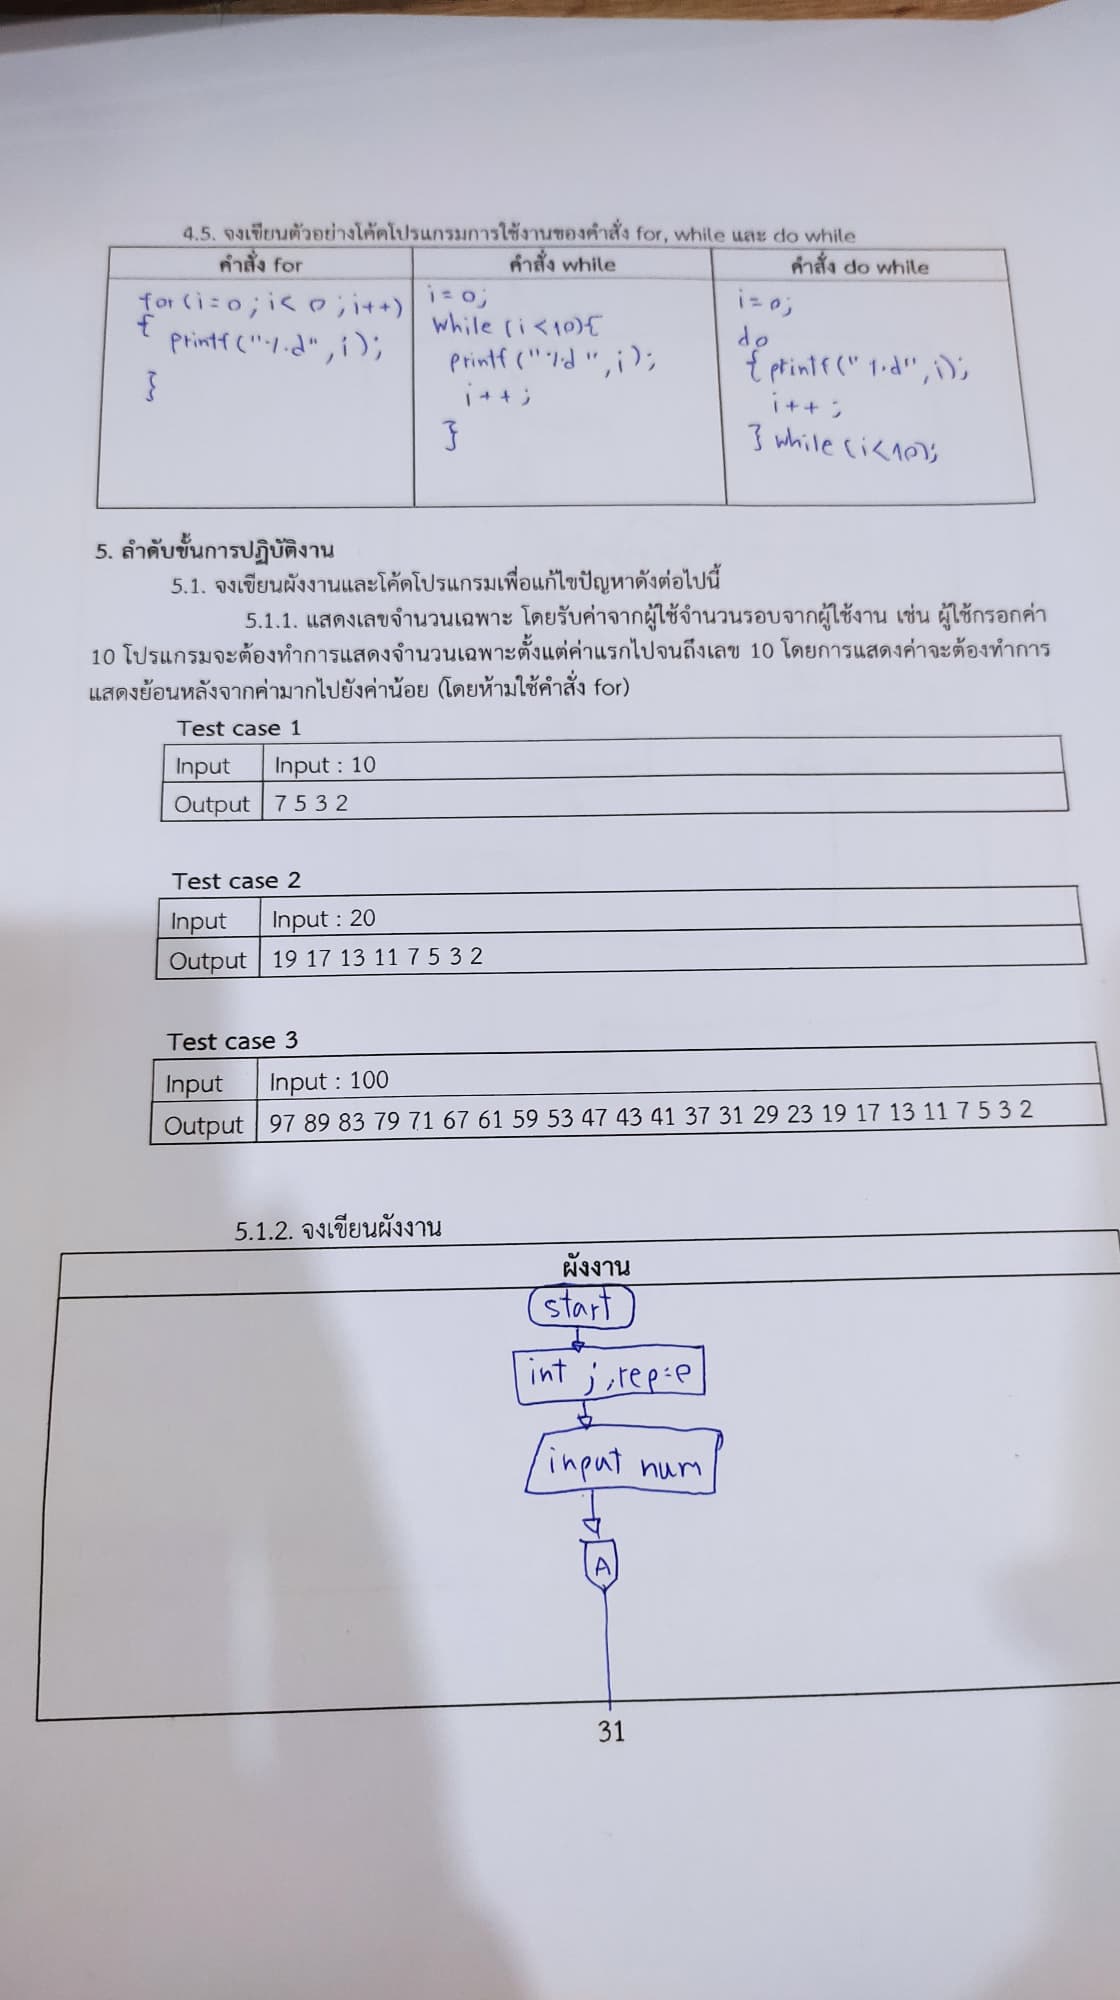 4.5. จงเขียนตัวอย่างโค้ดโปรแกรมการใช้งานของคำสั่ง for, while และ do while
คำสั่ง for
for(i=0;i<0;i++)
{
printf("%d",i);
}
คำสั่ง while
i=0;
while(i<10){
printf("%d",i);
i++;
}
คำสั่ง do while
i=0;
do
{printf("%d",i);
i++;
}while(i<10);
5. ลำดับขั้นการปฏิบัติงาน
5.1. จงเขียนผังงานและโค้ดโปรแกรมเพื่อแก้ไขปัญหาดังต่อไปนี้
5.1.1. แสดงเลขจำนวนเฉพาะ โดยรับค่าจากผู้ใช้จำนวนรอบจากผู้ใช้งาน เช่น ผู้ใช้กรอกค่า
10 โปรแกรมจะต้องทำการแสดงจำนวนเฉพาะตั้งแต่ค่าแรกไปจนถึงเลข 10 โดยการแสดงค่าจะต้องทำการ
แสดงย้อนหลังจากค่ามากไปยังค่าน้อย (โดยห้ามใช้คำสั่ง for)
Test case 1
Input Input : 10
Output 7 5 3 2
Test case 2
Input Input : 20
Output 19 17 13 11 7 5 3 2
Test case 3
Input Input : 100
Output 97 89 83 79 71 67 61 59 53 47 43 41 37 31 29 23 19 17 13 11 7 5 3 2
5.1.2. จงเขียนผังงาน
ผังงาน
start
int j,rep=e
input num
A
31